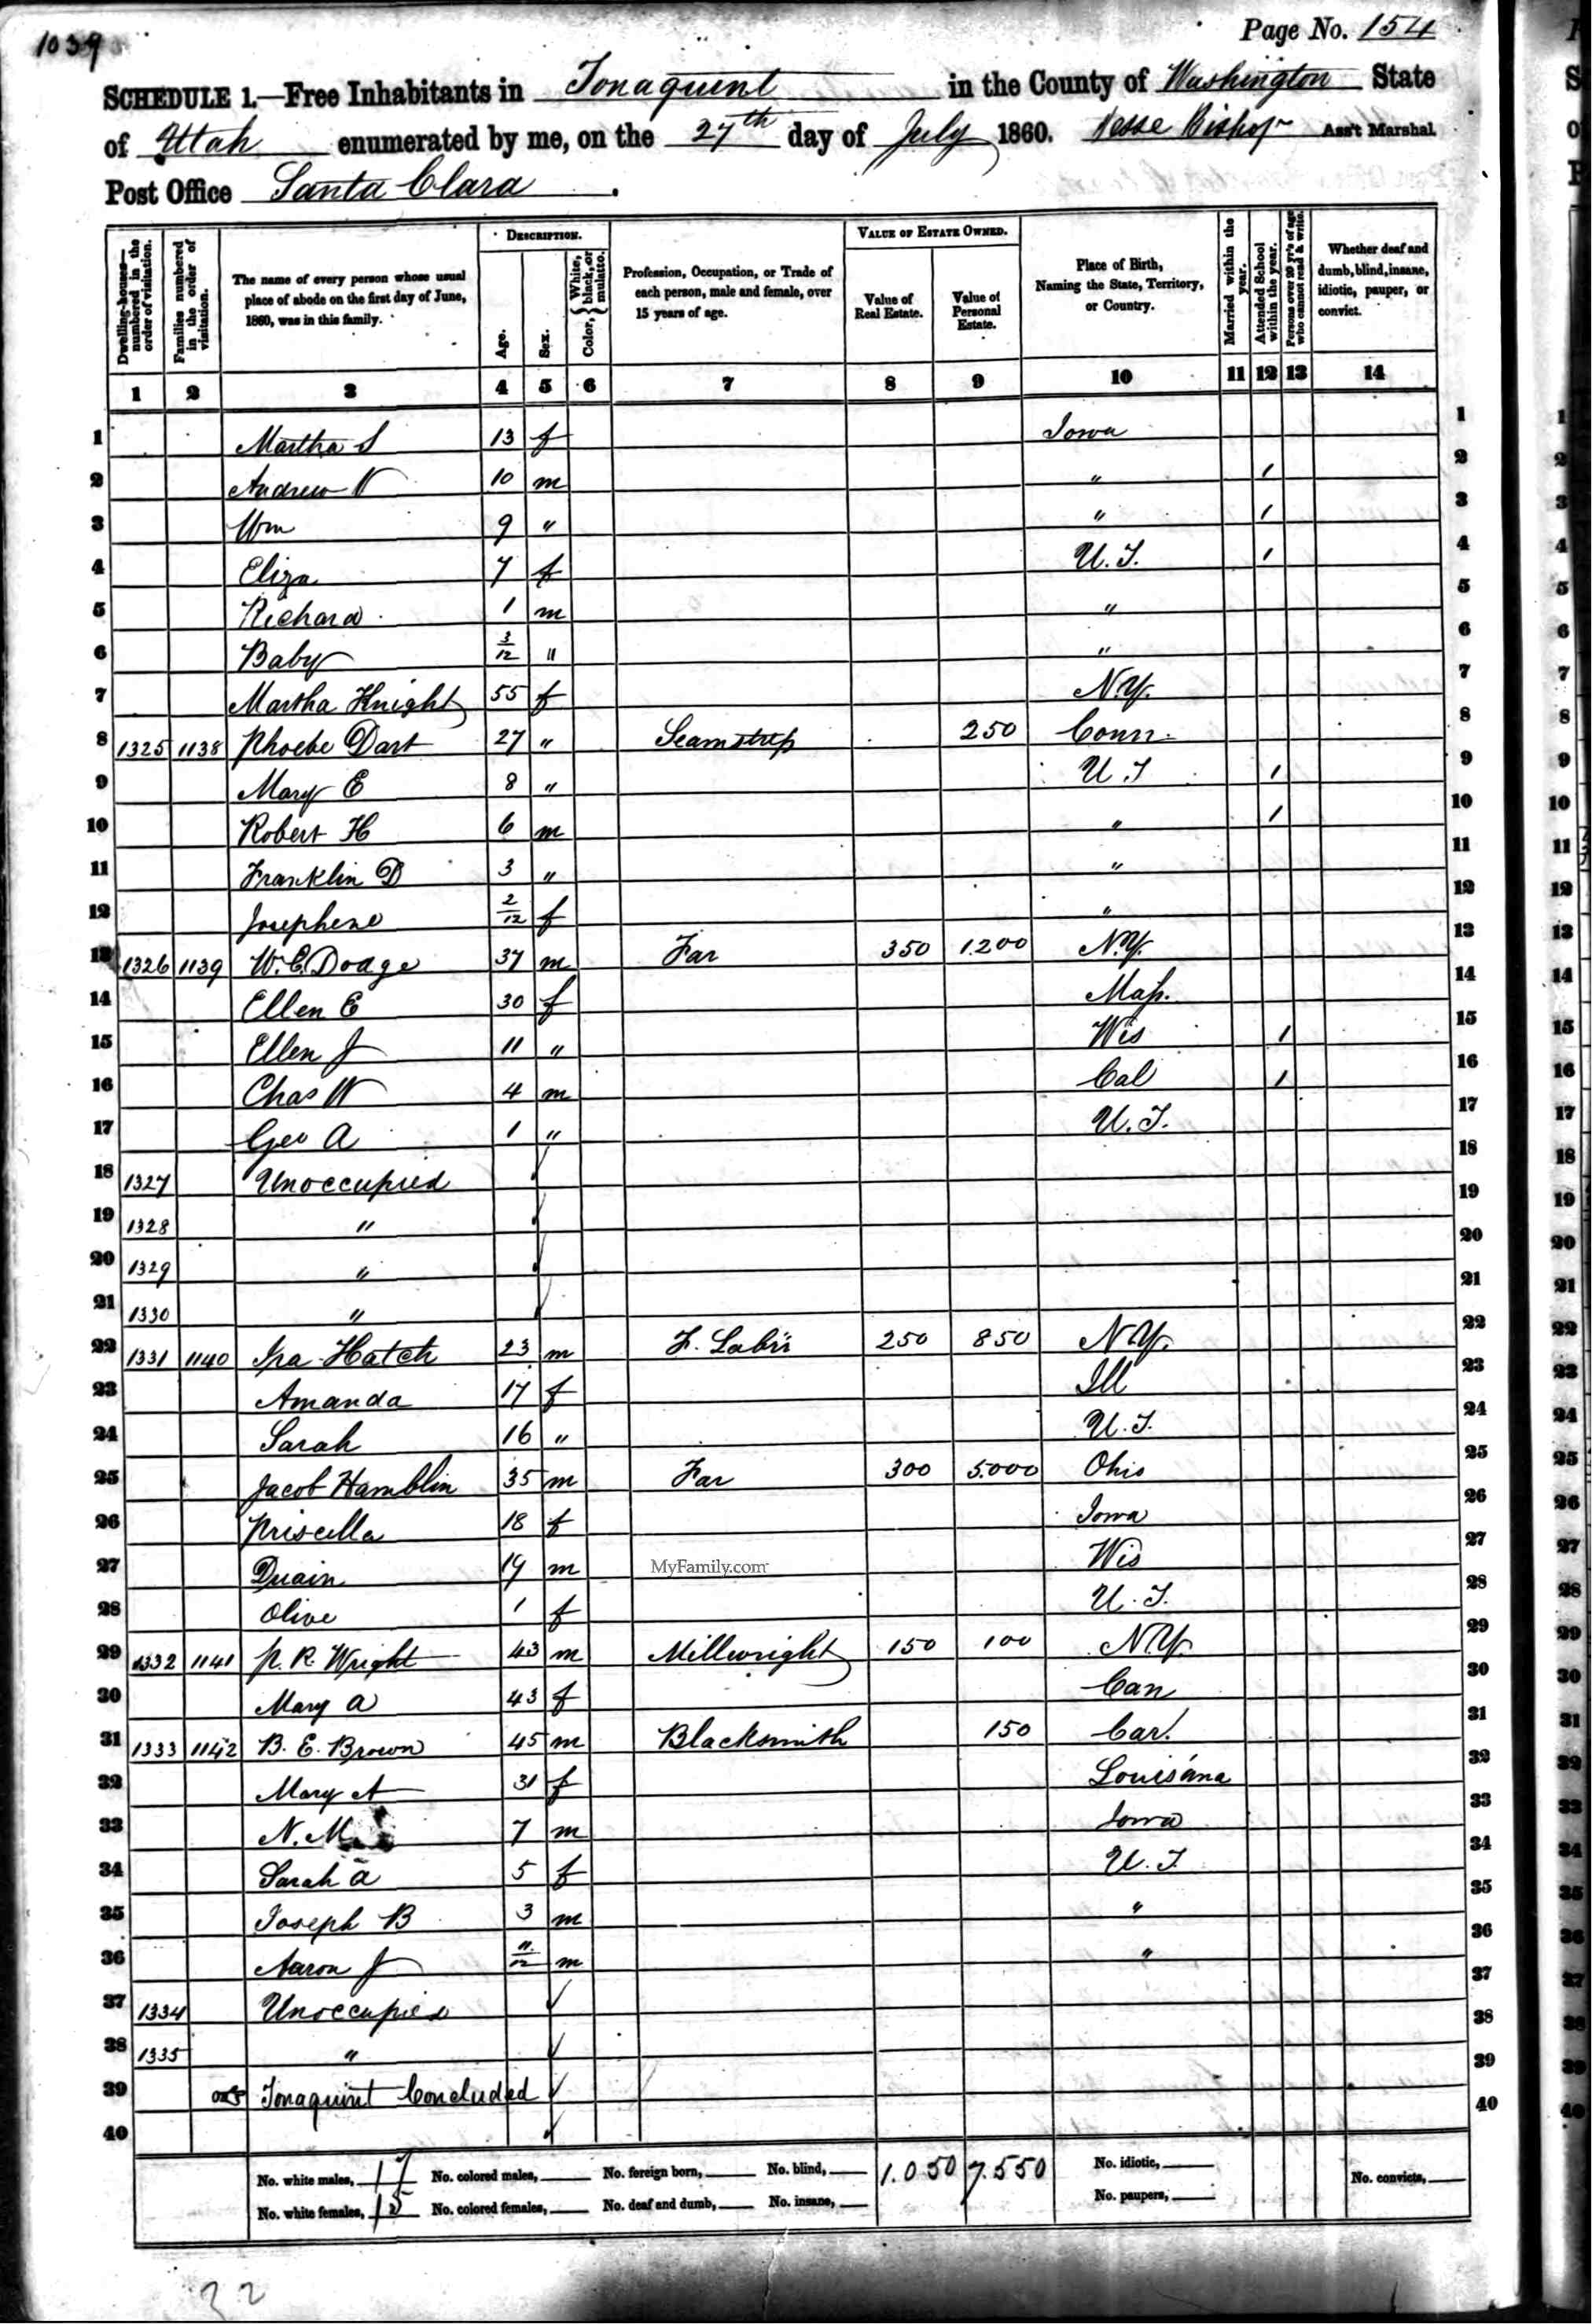 1039
Page No. 154
SCHEDULE 1.—Free Inhabitants in Tonaquint in the County of Washington State
of Utah enumerated by me, on the 27th day of July 1860. Bishop Ass't Marshal.
Post Office Santa Clara.
Dwelling-houses—numbered in the order of visitation. Families numbered in the order of visitation. The name of every person whose usual place of abode on the first day of June, 1860, was in this family. DESCRIPTION. Age. Sex. Color, { White, black, or mulatto. Profession, Occupation, or Trade of each person, male and female, over 15 years of age. VALUE OF ESTATE OWNED. Value of Real Estate. Value of Personal Estate. Place of Birth, Naming the State, Territory, or Country. Married within the year. Attended School within the year. Persons over 20 y'rs of age who cannot read & write. Whether deaf and dumb, blind, insane, idiotic, pauper, or convict.
1 2 3 4 5 6 7 8 9 10 11 12 13 14
1 Martha S 13 f Iowa 1
2 Andrew N 10 m " / 2
3 Wm 9 " " / 3
4 Eliza 7 f U.T. / 4
5 Richard 1 m " 5
6 Baby 3/12 " " 6
7 Martha Knight 55 f N.Y. 7
8 1325 1138 Phoebe Dart 27 " Seamstress 250 Conn. 8
9 Mary E 8 " U.T / 9
10 Robert H 6 m " / 10
11 Franklin D 3 " " 11
12 Josephene 2/12 f " 12
13 1326 1139 W.E. Dodge 37 m Far 350 1200 N.Y. 13
14 Ellen E 30 f Mass. 14
15 Ellen J 11 " Wis / 15
16 Chas W 4 m Cal / 16
17 Geo A 1 " U.T. 17
18 1327 Unoccupied 18
19 1328 " 19
20 1329 " 20
21 1330 " 21
22 1331 1140 Ira Hatch 23 m F. 250 850 N.Y. 22
23 Amanda 17 f Ill 23
24 Sarah 16 " U.T. 24
25 Jacob Hamblin 35 m Far 300 5.000 Ohio 25
26 Priscilla 18 f Iowa 26
27 Duain 19 m MyFamily.com Wis 27
28 Olive 1 f U.T. 28
29 1332 1141 P. R. Wright 43 m Millwright 150 100 N.Y. 29
30 Mary A 43 f Can 30
31 1333 1142 B. E. Brown 45 m Blacksmith 150 Car. 31
32 Mary A 31 f Louisiana 32
33 N. M. 7 m Iowa 33
34 Sarah A 5 f U.T. 34
35 Joseph B 3 m " 35
36 Aaron J 11/12 m " 36
37 1334 Unoccupied 37
38 1335 " 38
39 Tonaquint Concluded 39
40 40
No. white males, 17 No. colored males, No. foreign born, No. blind, 1.050 7.550 No. idiotic, No. convicts,
No. white females, 15 No. colored females, No. deaf and dumb, No. insane, No. paupers,
22